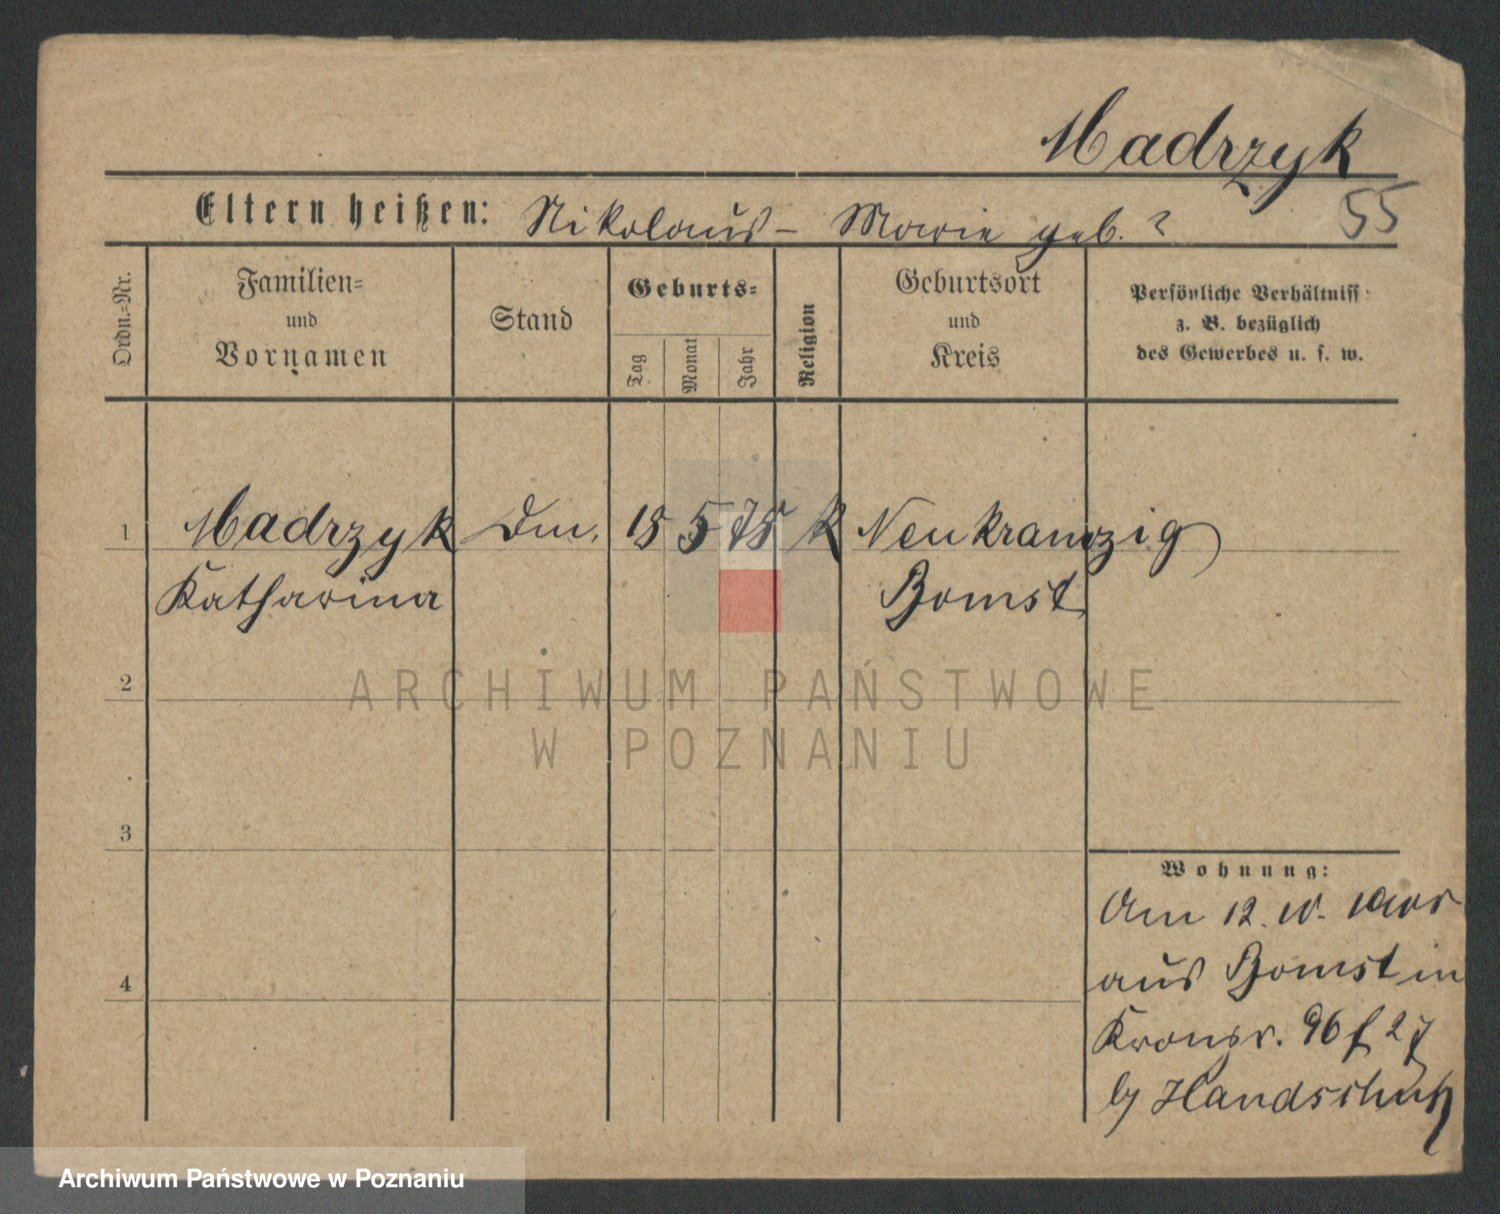 Madrzyk
55
Eltern heißen: Nikolaus – Marie geb. ?
Ordn.-Nr.
Familien-
und
Vornamen
Stand
Geburts-
Tag
Monat
Jahr
Religion
Geburtsort
und
Kreis
Persönliche Verhältniss
z. B. bezüglich
des Gewerbes u. s. w.
1 Madrzyk Dm. 15 5 75 K Neu kramzig
Katharina Bomst
2
ARCHIWUM PAŃSTWOWE
W POZNANIU
3
Wohnung:
Am 12. 10.
aus Bomst in
4
96
Handschuh
Archiwum Państwowe w Poznaniu